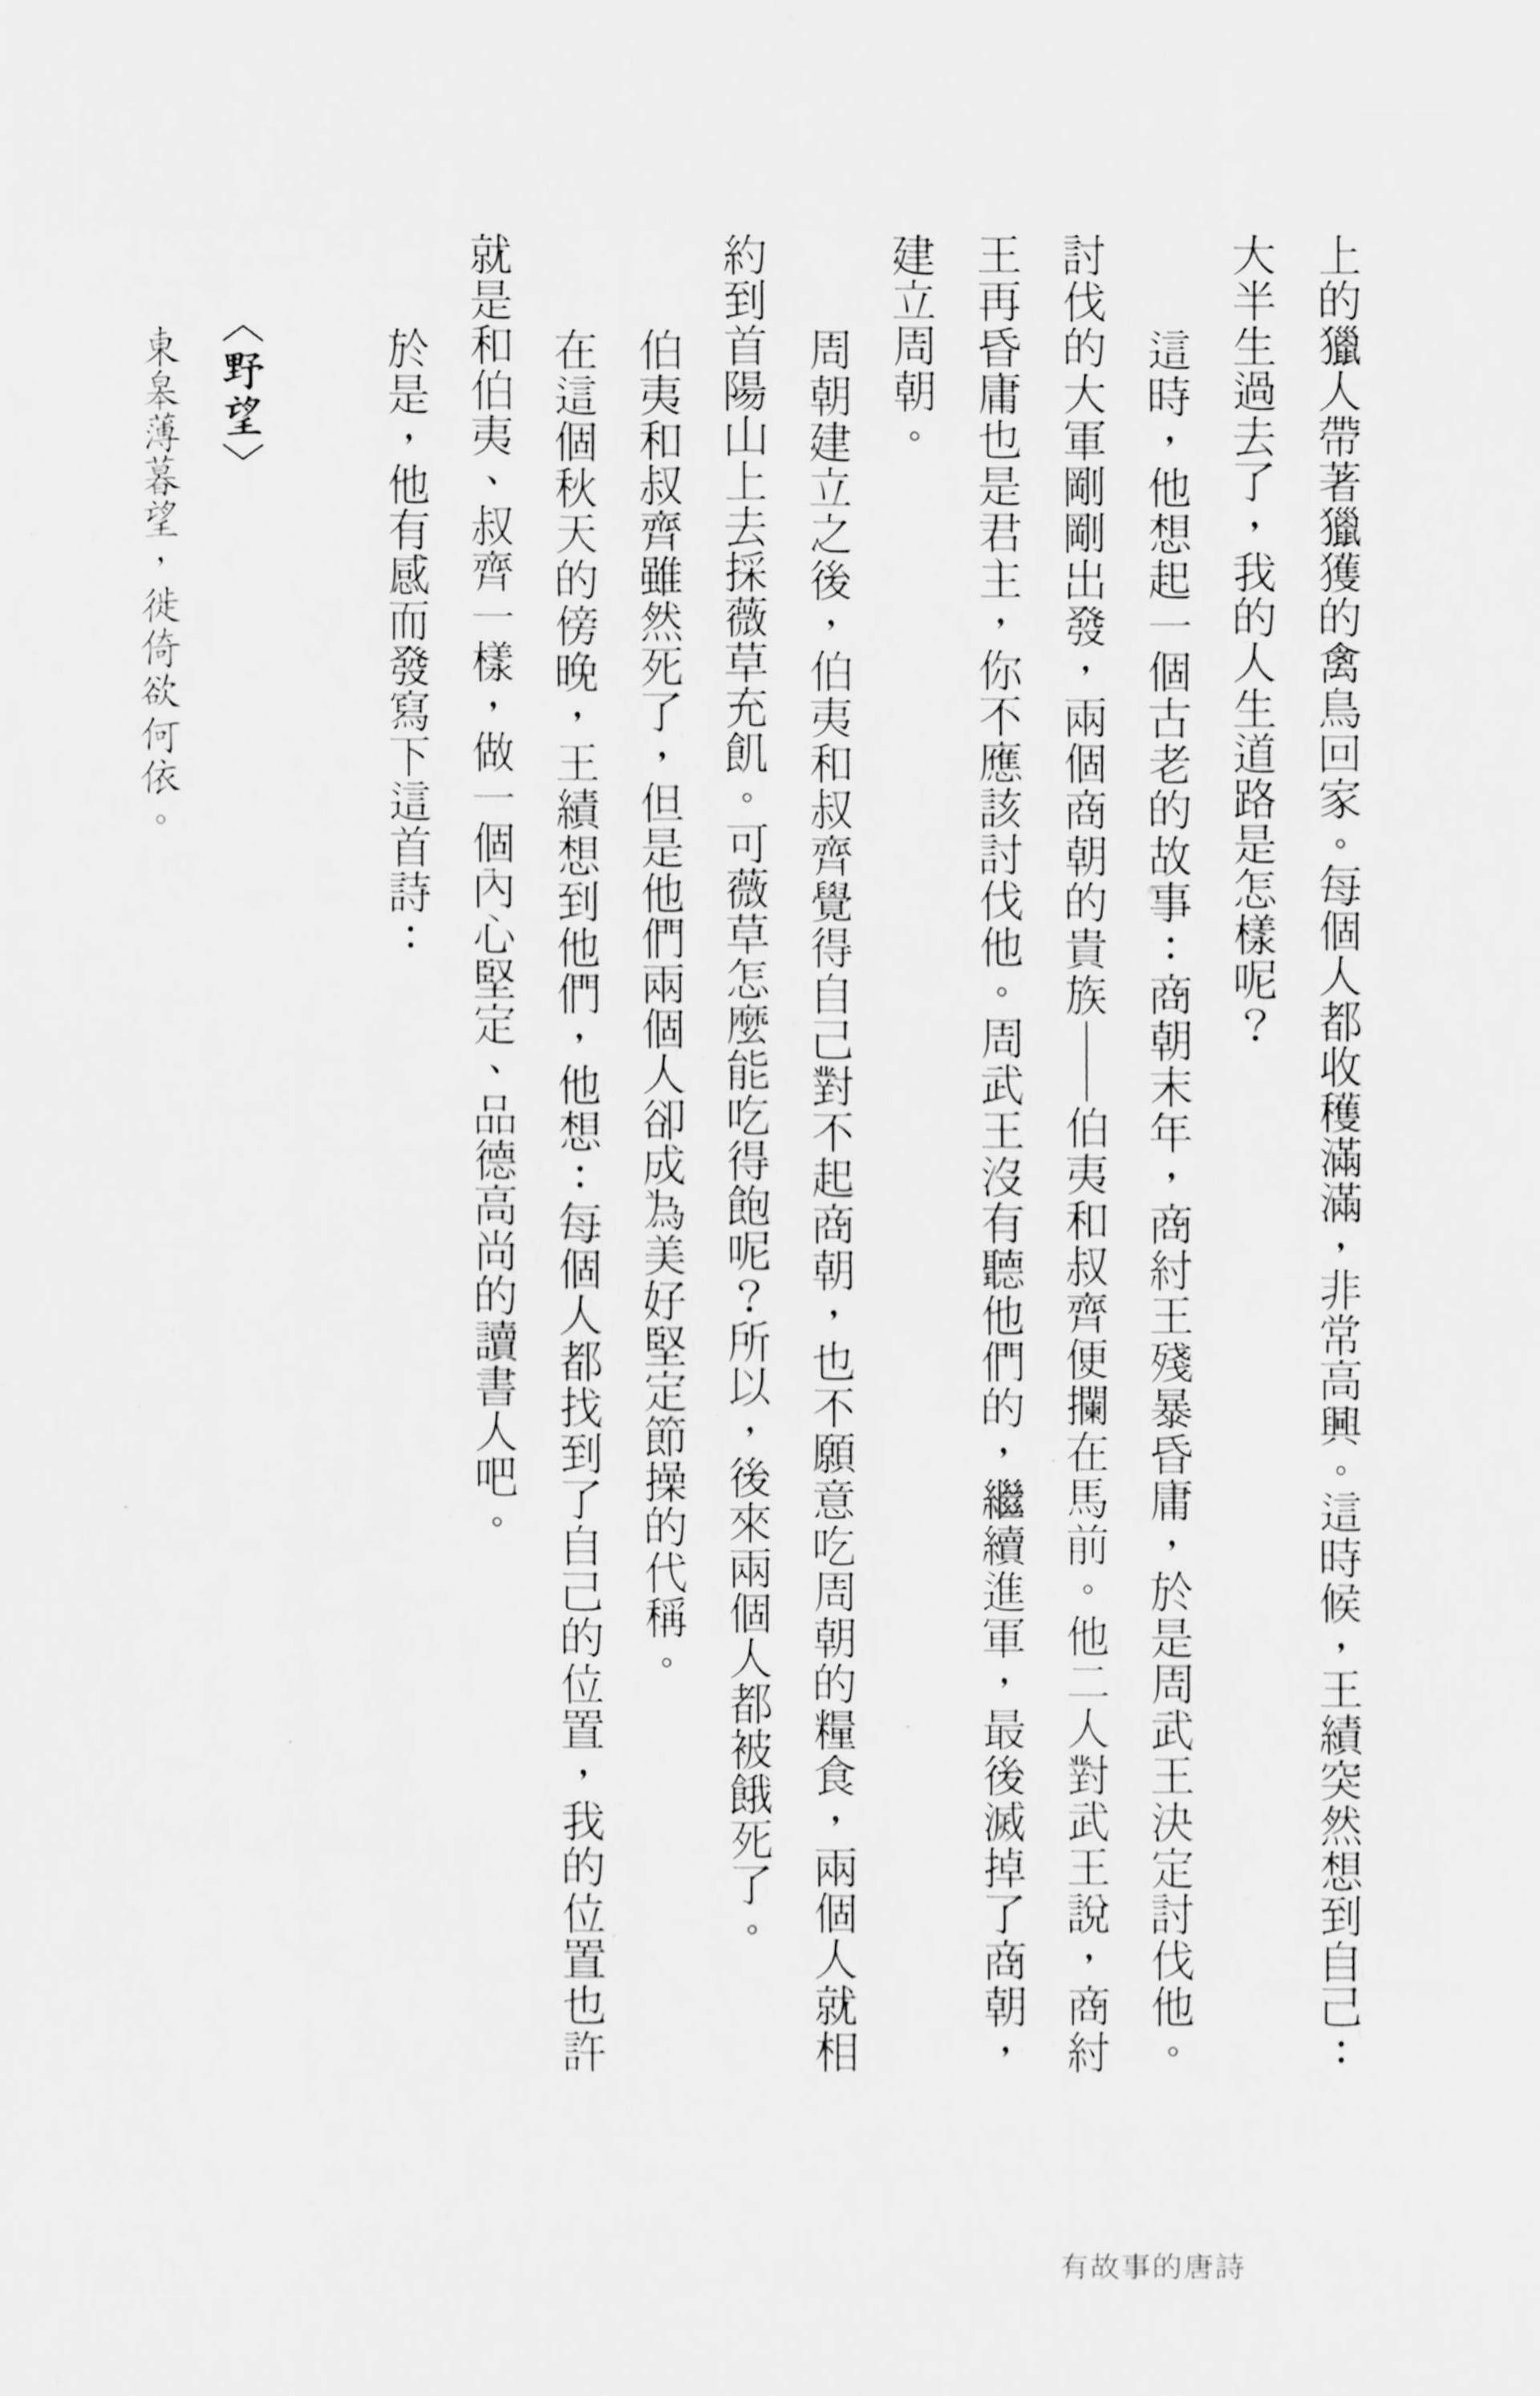 上的獵人帶著獵獲的禽鳥回家。每個人都收穫滿滿，非常高興。這時候，王績突然想到自己：
大半生過去了，我的人生道路是怎樣呢？
這時，他想起一個古老的故事：商朝末年，商紂王殘暴昏庸，於是周武王決定討伐他。
討伐的大軍剛剛出發，兩個商朝的貴族——伯夷和叔齊便攔在馬前。他二人對武王說，商紂
王再昏庸也是君主，你不應該討伐他。周武王沒有聽他們的，繼續進軍，最後滅掉了商朝，
建立周朝。
周朝建立之後，伯夷和叔齊覺得自己對不起商朝，也不願意吃周朝的糧食，兩個人就相
約到首陽山上去採薇草充飢。可薇草怎麼能吃得飽呢？所以，後來兩個人都被餓死了。
伯夷和叔齊雖然死了，但是他們兩個人卻成為美好堅定節操的代稱。
在這個秋天的傍晚，王績想到他們，他想：每個人都找到了自己的位置，我的位置也許
就是和伯夷、叔齊一樣，做一個內心堅定、品德高尚的讀書人吧。
於是，他有感而發寫下這首詩：
〈野望〉
東皋薄暮望，徙倚欲何依。
有故事的唐詩